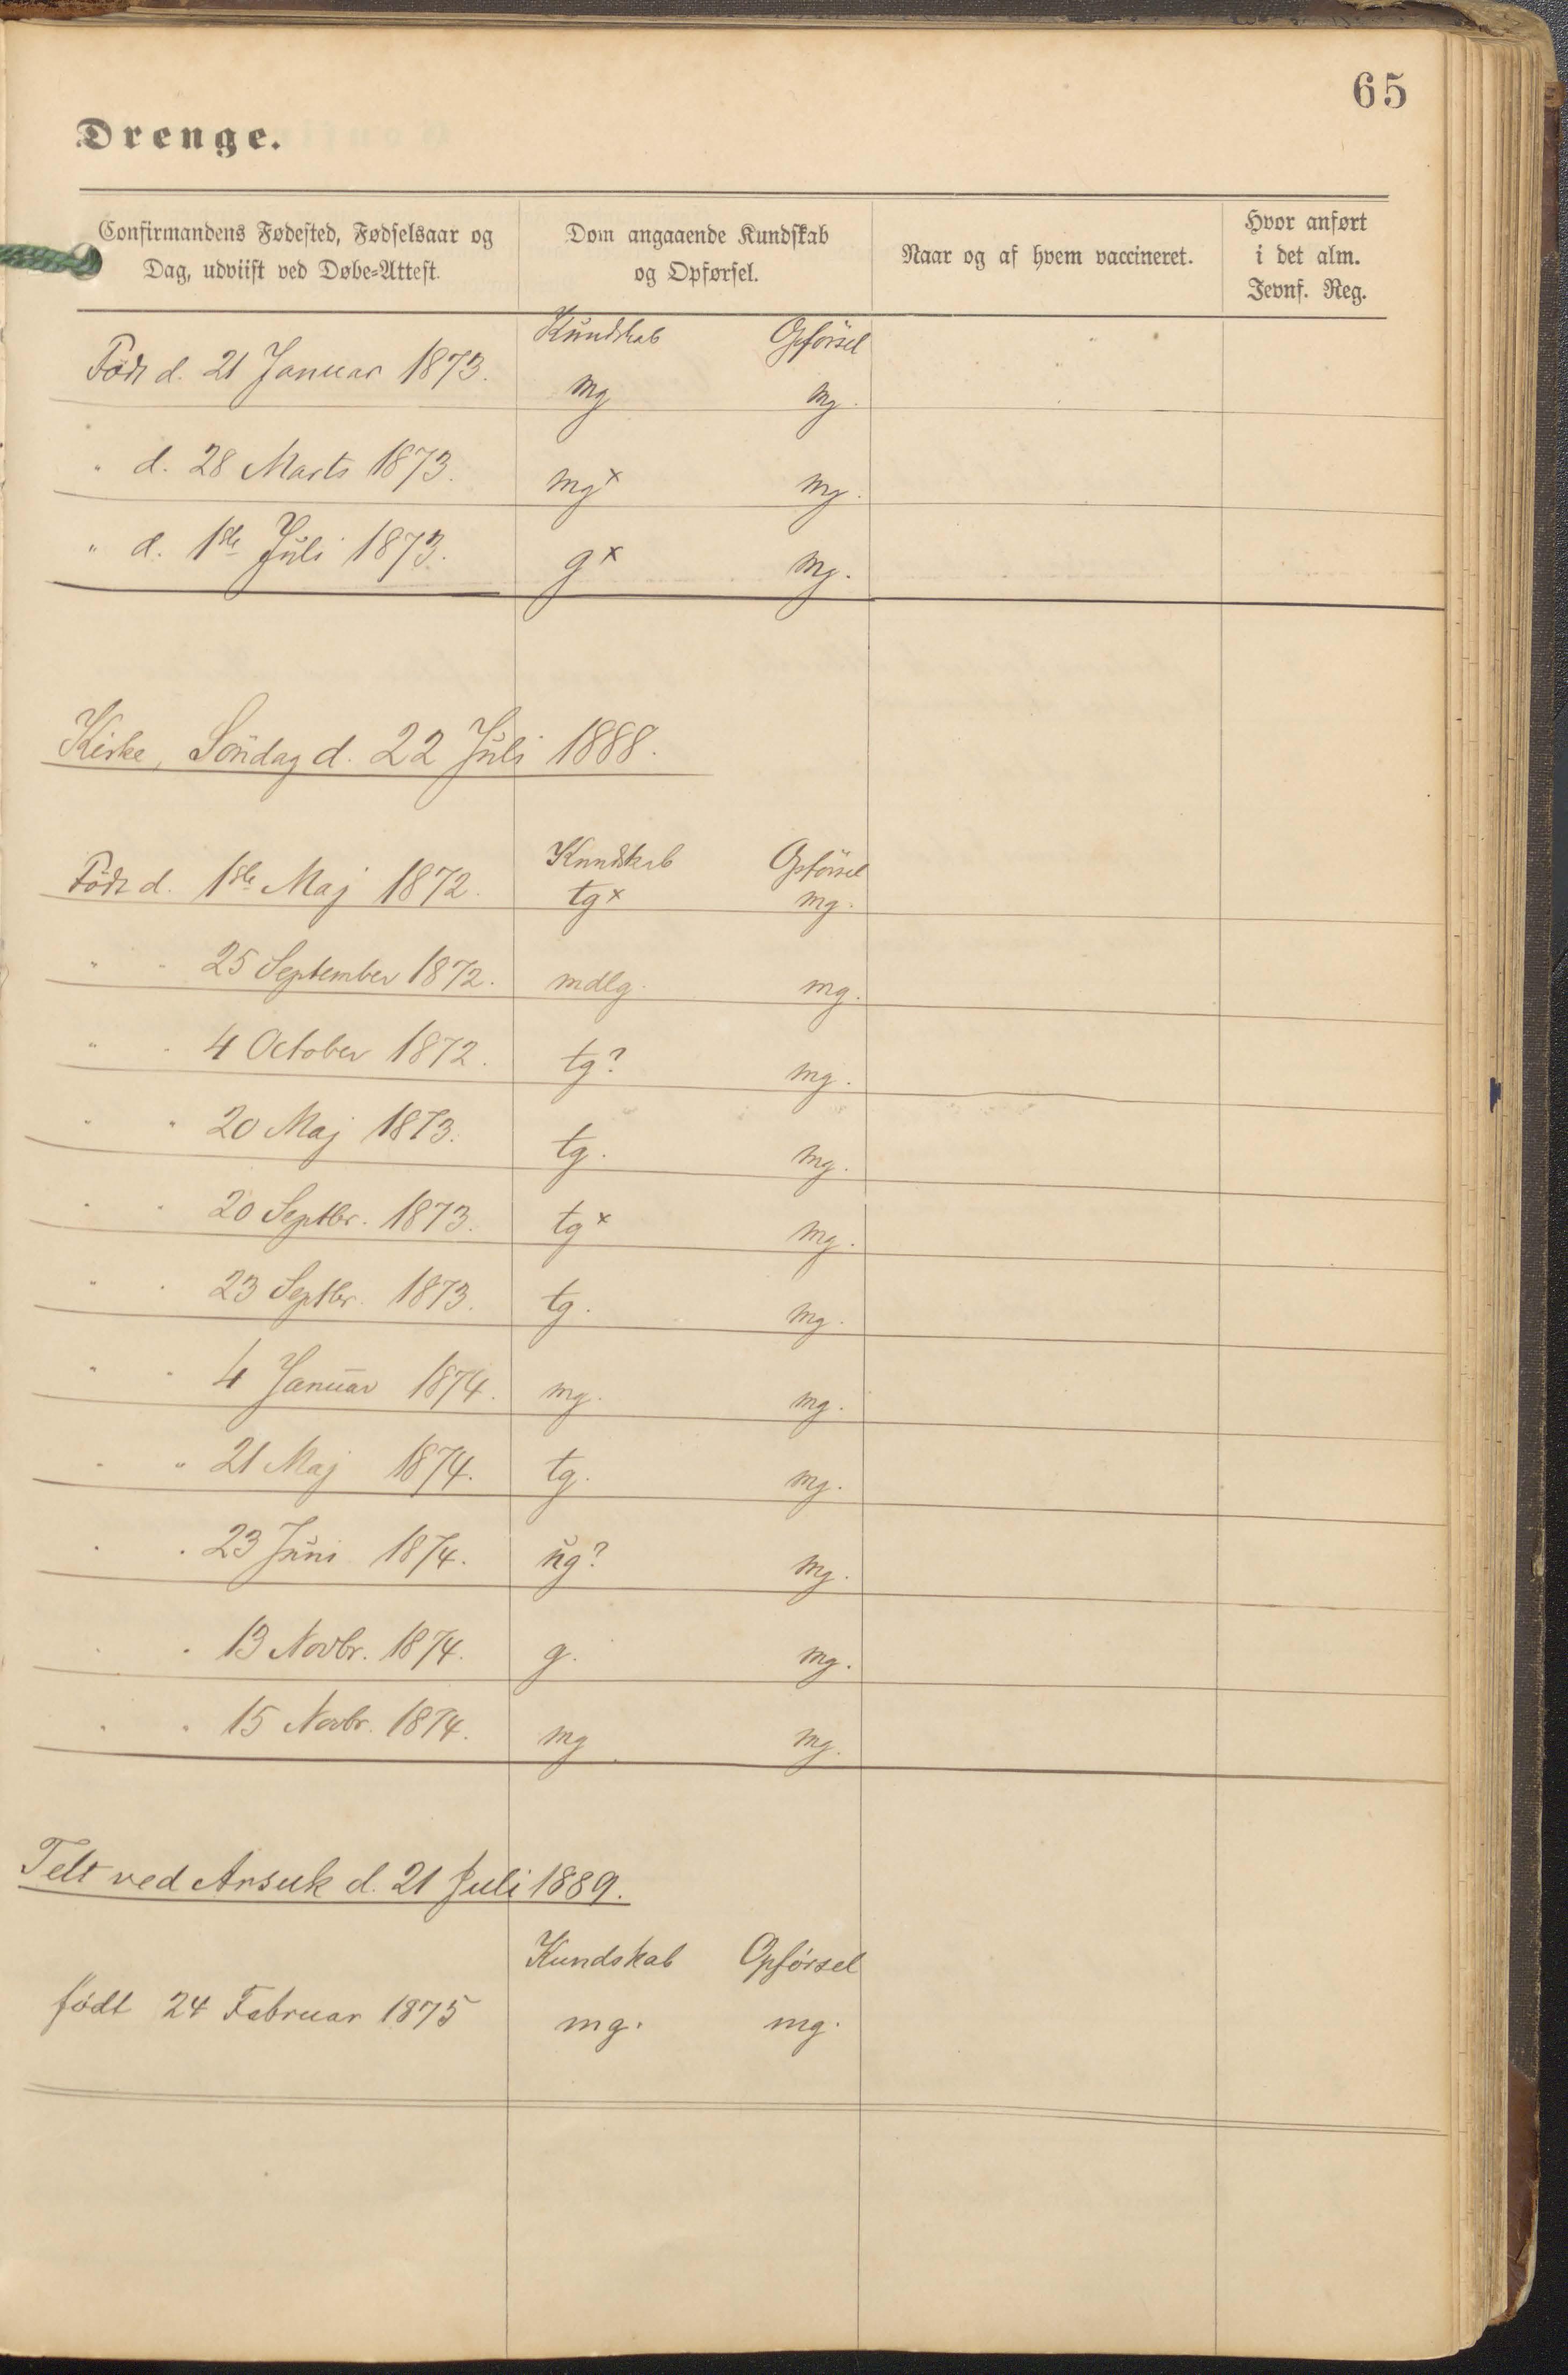 65
Drenge.
Confirmandens Fødested, Fødselsaar og Dag, udviist ved Døbe-Attest. | Dom angaaende Kundskab og Opførsel. | Naar og af hvem vaccineret. | Hvor anført i det alm. Jevnf. Reg.
Kundskab Opförsel
Född d. 21 Januar 1873. mg mg.
" d. 28 Marts 1873. mgx mg.
" d. 1ste Juli 1873. gx mg.
Kirke, Söndag d. 22 Juli 1888.
Kundskab Opförsel
Född d. 1ste Maj 1872. tgx mg.
" " 25 September 1872. mdlg. mg.
" " 4 October 1872. tg? mg.
" " 20 Maj 1873. tg. mg.
" " 20 Septbr. 1873. tgx mg.
" " 23 Septbr. 1873. tg. mg.
" " 4 Januar 1874. mg. mg.
" " 21 Maj 1874. tg. mg.
" " 23 Juni 1874. ug? mg.
" " 13 Novbr. 1874. g. mg.
" " 15 Novbr. 1874. mg. mg.
Telt ved Arsuk d. 21 Juli 1889.
Kundskab Opförsel
født 24 Februar 1875 mg. mg.